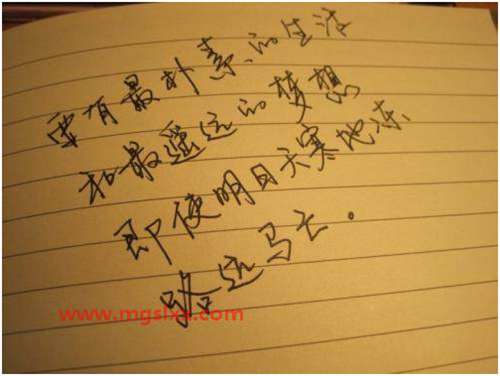 要有最朴素的生活
和最遥远的梦想
即使明日天寒地冻
路远马亡.
www.mgslxx.com